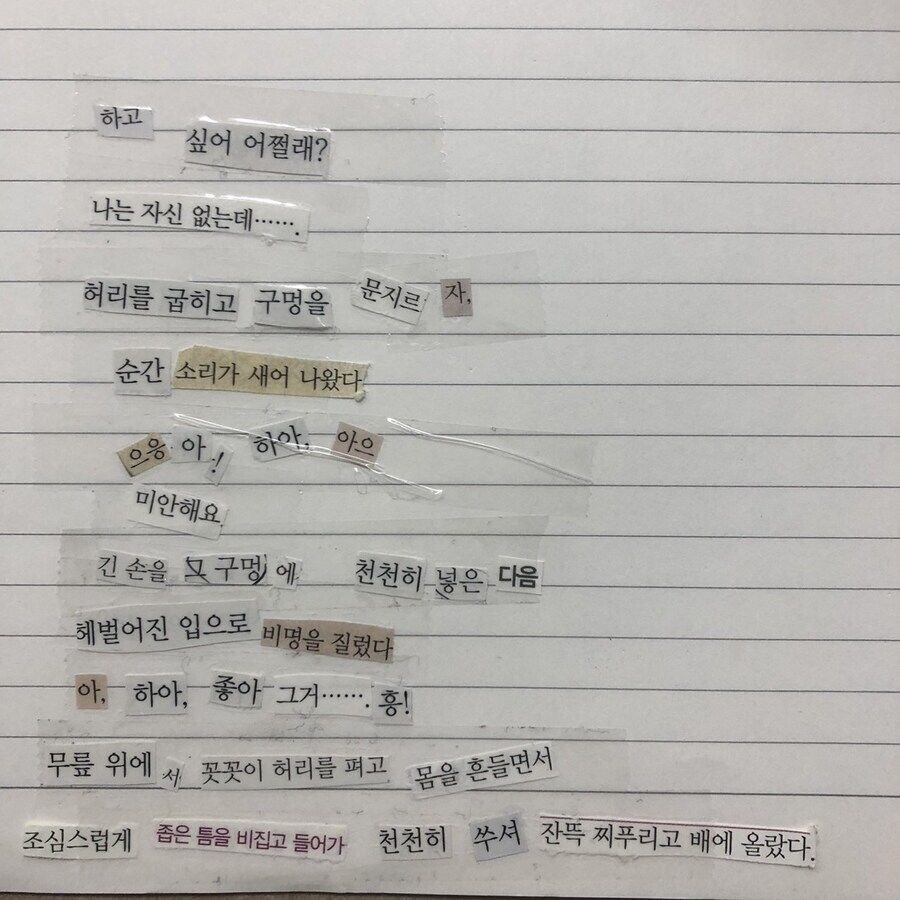 하고 싶어 어쩔래?
나는 자신 없는데…….
허리를 굽히고 구멍을 문지르자,
순간 소리가 새어 나왔다
으응 아! 하아, 아으
미안해요
긴 손을 그 구멍에 천천히 넣은 다음
헤벌어진 입으로 비명을 질렀다
아, 하아, 좋아 그거……. 흥!
무릎 위에서 꼿꼿이 허리를 펴고 몸을 흔들면서
조심스럽게 좁은 틈을 비집고 들어가 천천히 쑤셔 잔뜩 찌푸리고 배에 올랐다.